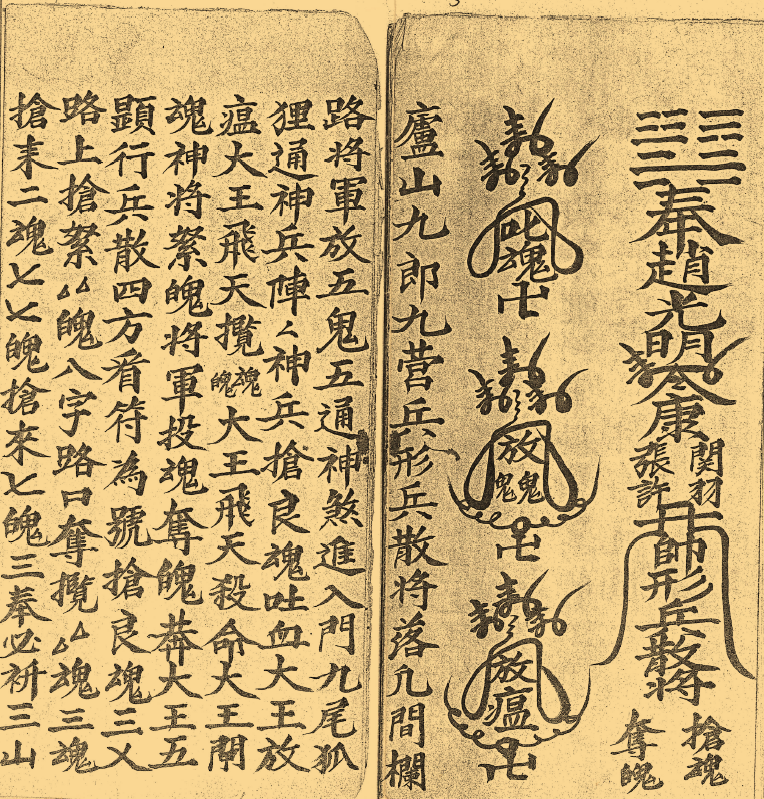 奉趙光明令康
張許
関羽
帥形兵散将
搶魂
奪魄
叱魂卍
放鬼鬼卍
放瘟卍
廬山九郎九营兵形兵散将落九間欄
路将軍放五鬼五通神煞進入門九尾狐
狸通神兵陣〻神兵搶良魂吐血大王放
瘟大王飛天攬魂魄大王飛天殺命大王開
魂神将拏魄将軍投魂奪魄莽大王五
顕行兵散四方看符為號搶良魂三乂
路上搶拏〻魄八字路口奪攬〻魂三魂
搶来二魂七七魄搶來七魄三奉必斬三山